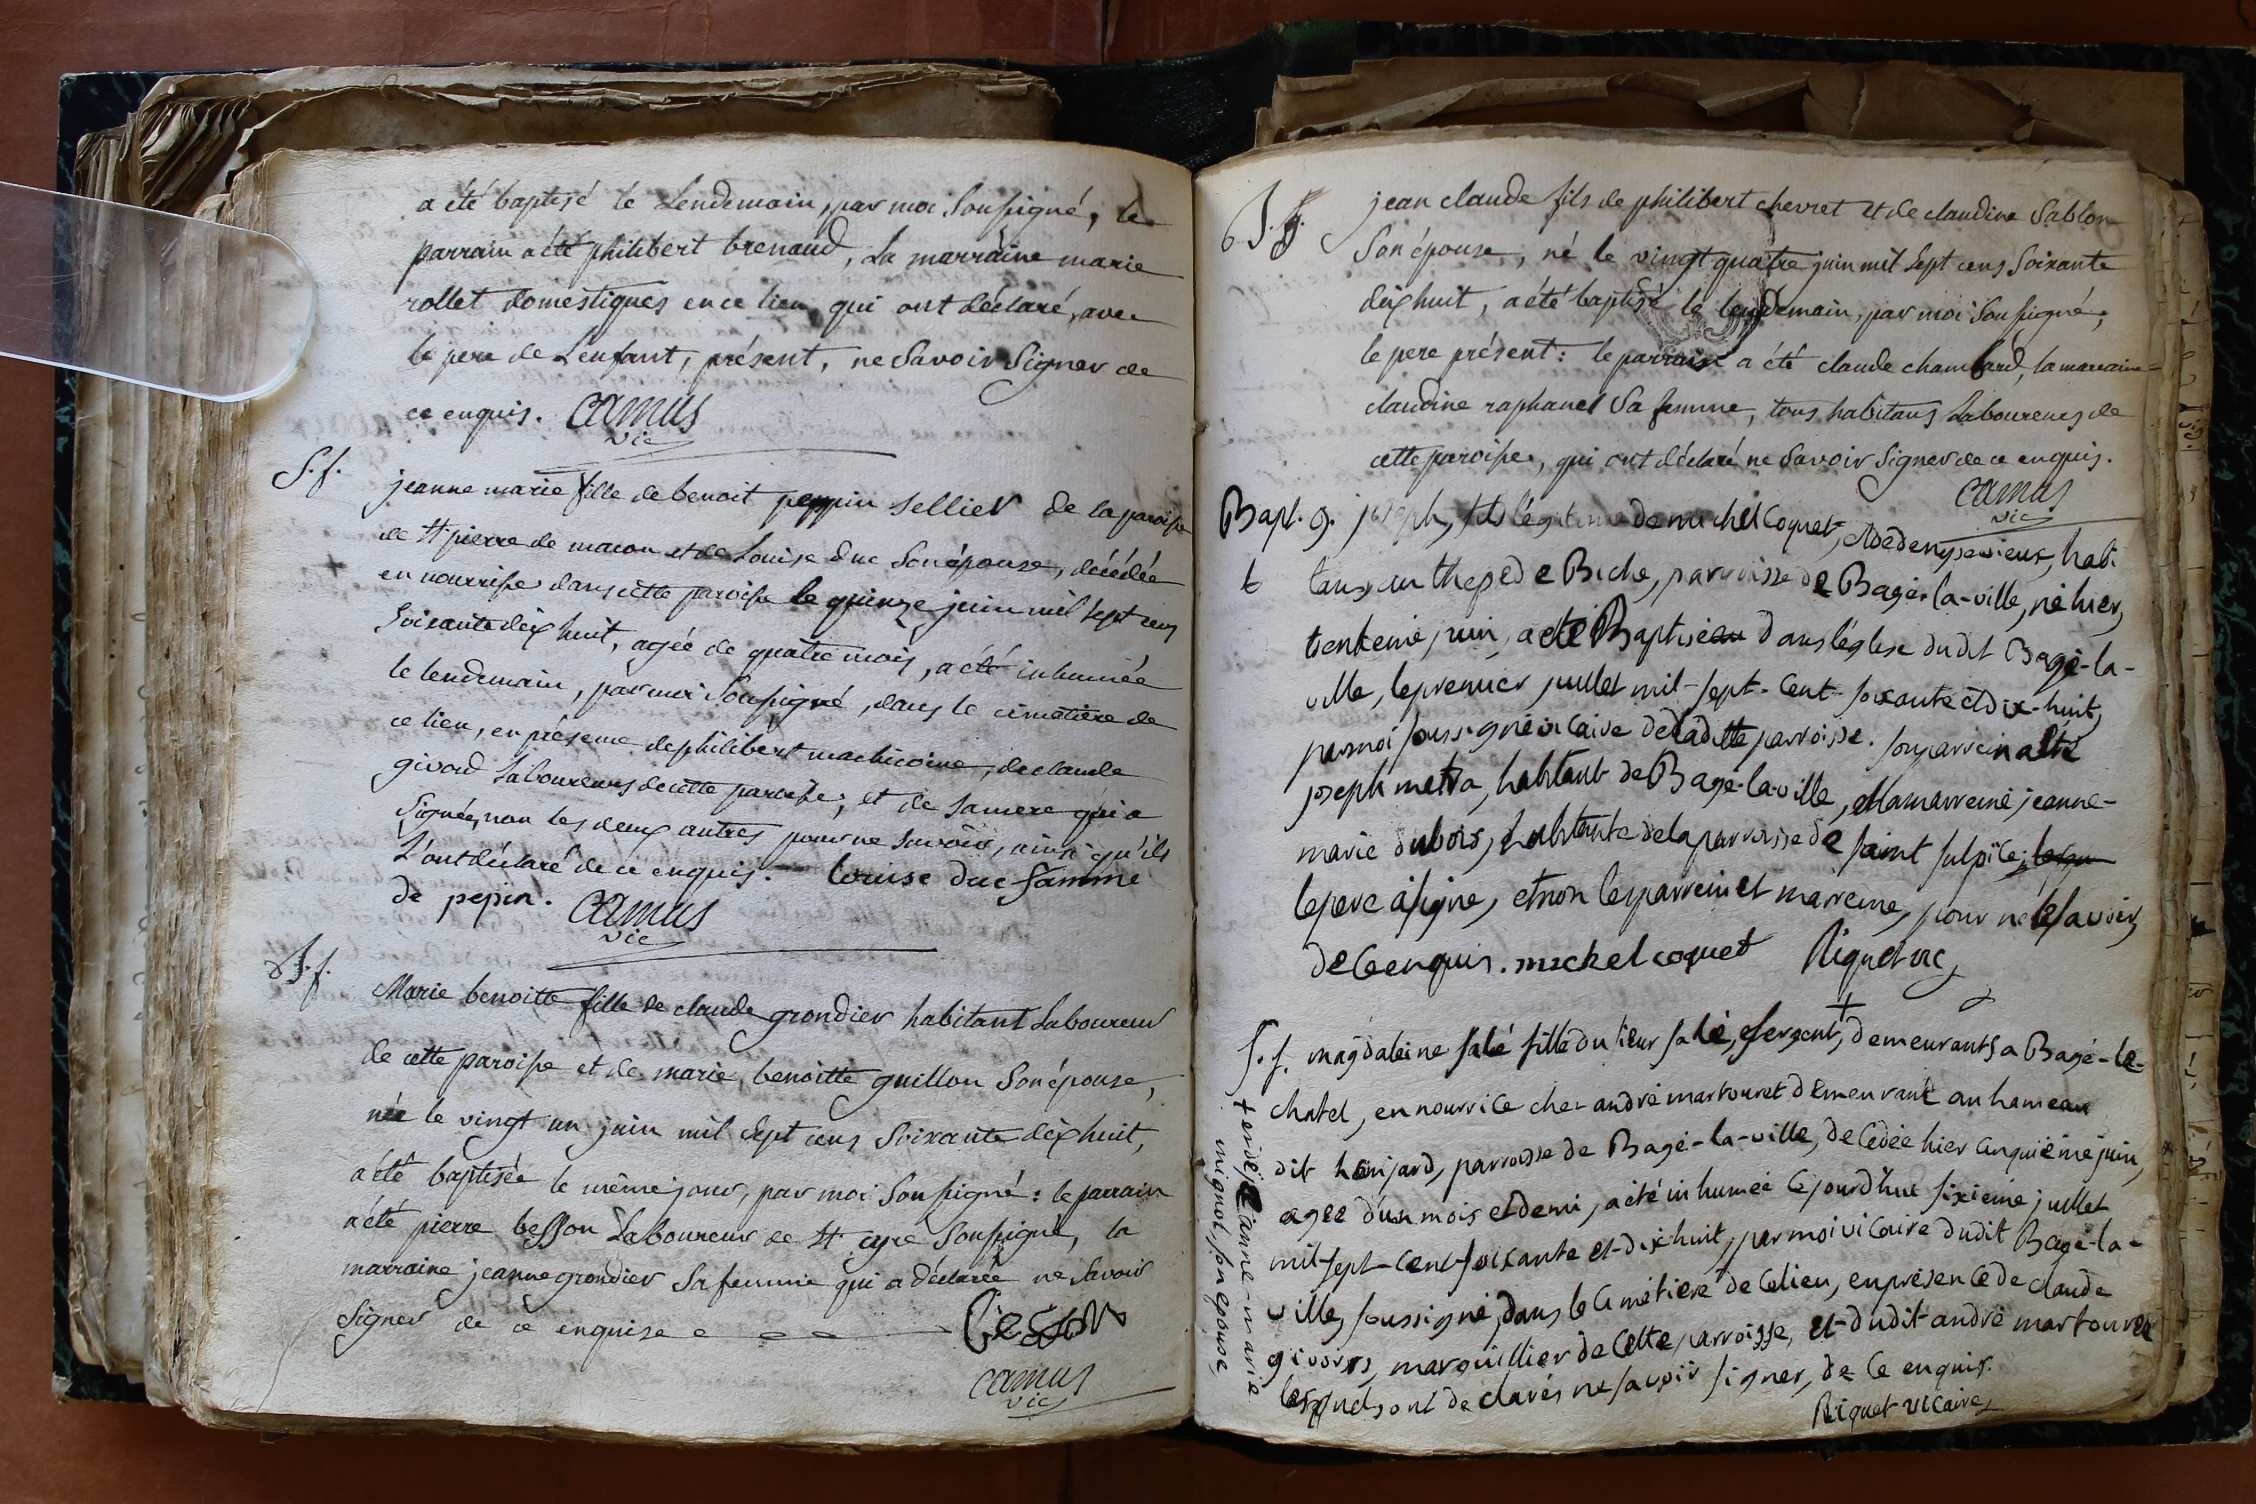 a été baptisé le Lendemain, par moi Soussigné, le
parrain a été philibert brenaud, La marraine marie
rollet domestiques en ce lieu qui ont déclaré, avec
le pere de L'enfant, présent, ne Savoir Signer de
ce enquis. camus
vic
S. f.
jeanne marie fille de benoit peppin sellier de la paroisse
de St pierre de macon et de Louise Duc Son épouse, décédée
en nourrisse dans cette paroisse le quinze juin mil Sept cens
Soixante dix huit, agée de quatre mois, a été inhumée
le lendemain, par moi Soussigné, dans le cimetiere de
ce lieu, en présence de philibert machicoine, de claude
givord Laboureurs de cette paroisse, et de Sa mere qui a
Signée, non les deux autres pour ne Savoir, ainsi qu'ils
L'ont déclaré de ce enquis. louise duc famme
de pepin. camus
vic
B. f.
Marie benoitte fille de claude grondier habitant Laboureur
de cette paroisse et de marie benoitte guillon Son épouse,
née le vingt un juin mil Sept cens Soixante dix huit,
a été baptisée le même jour, par moi Soussigné: le parrain
a été pierre besson Laboureur de St cyre Soussigné, la
marraine jeanne grondier Sa femme qui a déclarée ne Savoir
Signer de ce enquise
Besson
camus
vic
B. g.
jean claude fils de philibert chevret et de claudine Sablon
Son épouse, né le vingt quatre juin mil Sept cens Soixante
dix huit, a été baptisé le lendemain, par moi Soussigné,
le pere présent: le parrain a été claude chambard, la marraine
claudine raphanel Sa femme, tous habitans Laboureurs de
cette paroisse, qui ont déclaré ne Savoir Signer de ce enquis.
camus
vic
Bapt. g. joseph, fils légitime de michel Coquet, et de denyse vieux, habi
tans, au de Biche, parroisse de Bagé-la-ville, né hier,
trentieme juin, a été Baptisé dans léglise dudit Bagé-la-
ville, le premier juillet mil-sept-cent-soixante et dix-huit,
par moi soussigné vicaire de laditte parroisse. son parrein a été
joseph metra, habitant de Bagé-la-ville, et la marreine jeanne-
marie dubois, habitante de la parroisse de saint sulpice;
le pere à signé, et non les parrein et marreine, pour ne le savoir,
de ce enquis. michel coquet Riquet vic,
S. f. magdaleine salé fille du sieur salé, sergent, + demeurants a Bagé-le-
chatel, en nourrice chez andré martouret demeurant au hameau
dit honjard, parroisse de Bagé-la-ville, decédée hier cinquieme juin,
agée d'un mois et demi, a été inhumée cejourd'hui sixieme juillet
mil-sept-cent-soixante et-dix-huit, par moi vicaire dudit Bagé-la-
ville, soussigné, dans le cimétiere de ce lieu, en présence de claude
givors, marguillier de cette parroisse, et dudit andré martouret
lesquels ont declarés ne savoir signer, de ce enquis.
Riquet vicaire,
+ et de jeanne-marie
mignot, son epouse,